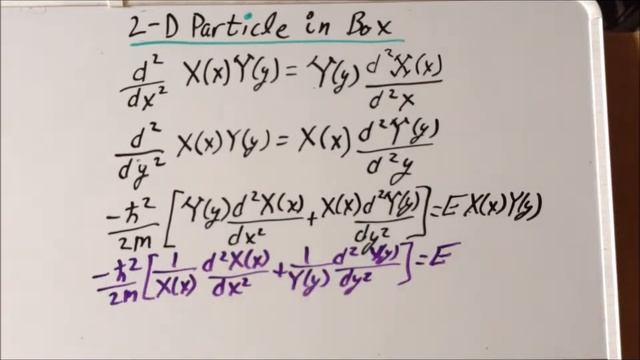 2-D Particle in Box
d²/dx² X(x)Y(y) = Y(y) d²X(x)/d²x
d²/dy² X(x)Y(y) = X(x) d²Y(y)/d²y
-ħ²/2m [Y(y) d²X(x)/dx² + X(x) d²Y(y)/dy²] = E X(x)Y(y)
-ħ²/2m [1/X(x) d²X(x)/dx² + 1/Y(y) d²Y(y)/dy²] = E